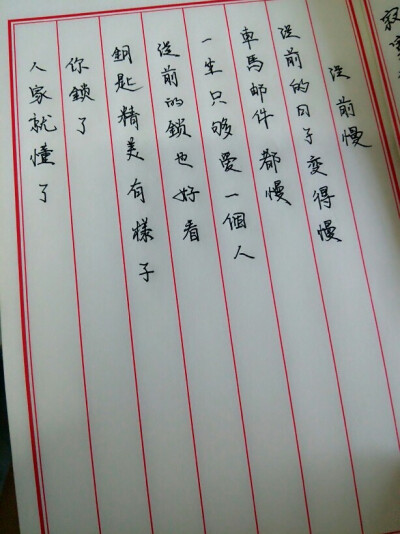 從前慢
從前的日子變得慢
車馬邮件都慢
一生只够愛一個人
從前的鎖也好看
鈅匙精美有樣子
你鎖了
人家就懂了